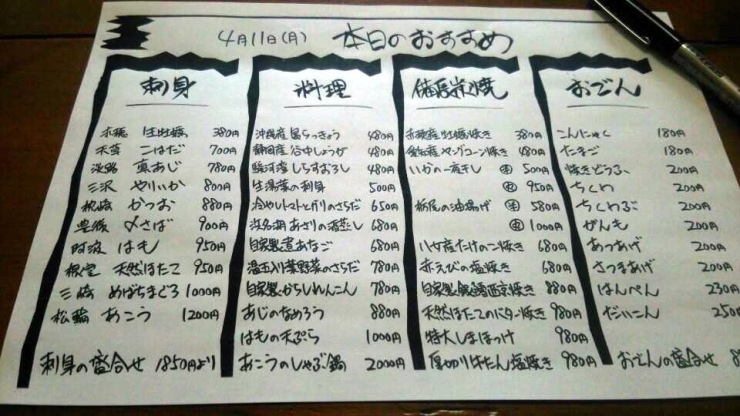 4月11日(月) 本日のおすすめ
刺身
赤穂 生牡蠣 380円
天草 こはだ 700円
淡路 真あじ 780円
三沢 やりいか 800円
枕崎 かつお 880円
豊後 〆さば 900円
阿波 はも 950円
根室 天然ほたて 950円
三崎 めばちまぐろ 1000円
松輪 あこう 1200円
刺身の盛合せ 1850円より
料理
沖縄産島らっきょう 480円
静岡産谷中しょうが 480円
駿河産しらすおろし 480円
生湯葉の刺身 500円
冷やしトマトとガリのさらだ 650円
浜名湖あさりの酒蒸し 680円
自家製煮あなご 680円
温玉入り葉野菜のさらだ 780円
自家製からしれんこん 780円
あじのなめろう 880円
はもの天ぷら 1000円
あこうのしゃぶ鍋 2000円
備長炭焼
赤穂産牡蠣焼き 380円
ヤングコーン焼き 480円
いかの一夜干し 小 500円
大 950円
栃尾の油揚げ 小 580円
大 1000円
八女産たけのこ焼き 680円
赤えびの塩焼き 680円
自家製銀鱈西京焼き 880円
天然ほたてのバター焼き 980円
特大しまほっけ 980円
厚切り牛たん塩焼き 980円
おでん
こんにゃく 180円
たまご 180円
焼きどうふ 200円
ちくわ 200円
ちくわぶ 200円
がんも 200円
あつあげ 200円
さつまあげ 200円
はんぺん 230円
だいこん 250
おでんの盛合せ 8